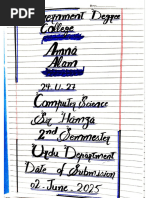 Government Degree
College
Amna
Alam
24.11.27
Computer Science
Sir Hamza
2nd Semmester
Urdu Department
Date of Submission
02. June, 2025